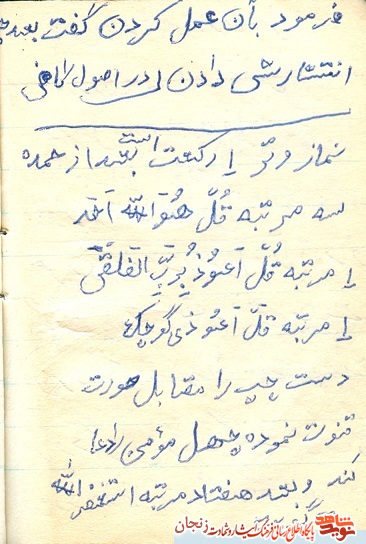 فرمود بآن عمل کردن گفت بعد
انتشارش دادن در اصول کافی
نماز وتر ۱ رکعت است بعد از حمده
سه مرتبه قُل هُوَ الله اَحَد
۱ مرتبه قُل اَعُوذُ بِرَبِّ الفَلَقِ
۱ مرتبه قُل اَعُوذ ی کوچک
دست چپ را مقابل صورت
قنوت نموده چهل مؤمن را دعا
کند و بعد هفتاد مرتبه استغفر الله
نوید شاهد
پایگاه اطلاع رسانی فرهنگ ایثار و شهادت زنجان